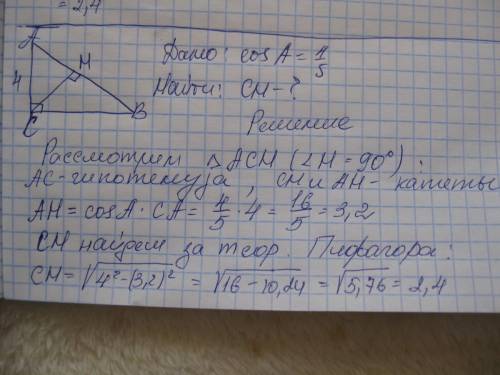 = 2,4
A
H
4
C
B
Дано: cos A = 4/5
Найти: CH - ?
Решение
Рассмотрим △ACH (∠H = 90°):
AC - гипотенуза, CH и AH - катеты
AH = cosA · CA = 4/5 · 4 = 16/5 = 3,2
CH найдем за теор. Пифагора:
CH = √(4² - (3,2)²) = √(16 - 10,24) = √5,76 = 2,4